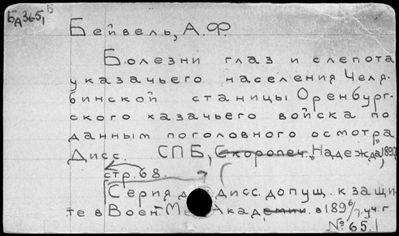 БА365,15
Бейвель, А.Ф.
Болезни глаз и слепота
у казачьего населения Челя-
бинской станицы Оренбург-
ского казачьего войска по
данным поголовного осмотра,
Дисс. СПБ, Скоропеч. Надежда, 1897
стр. 68.
Серия д Дисс. допущ. к защи-
те в Воен Мед Академии. в 1896/7 уч. г
№ 65.